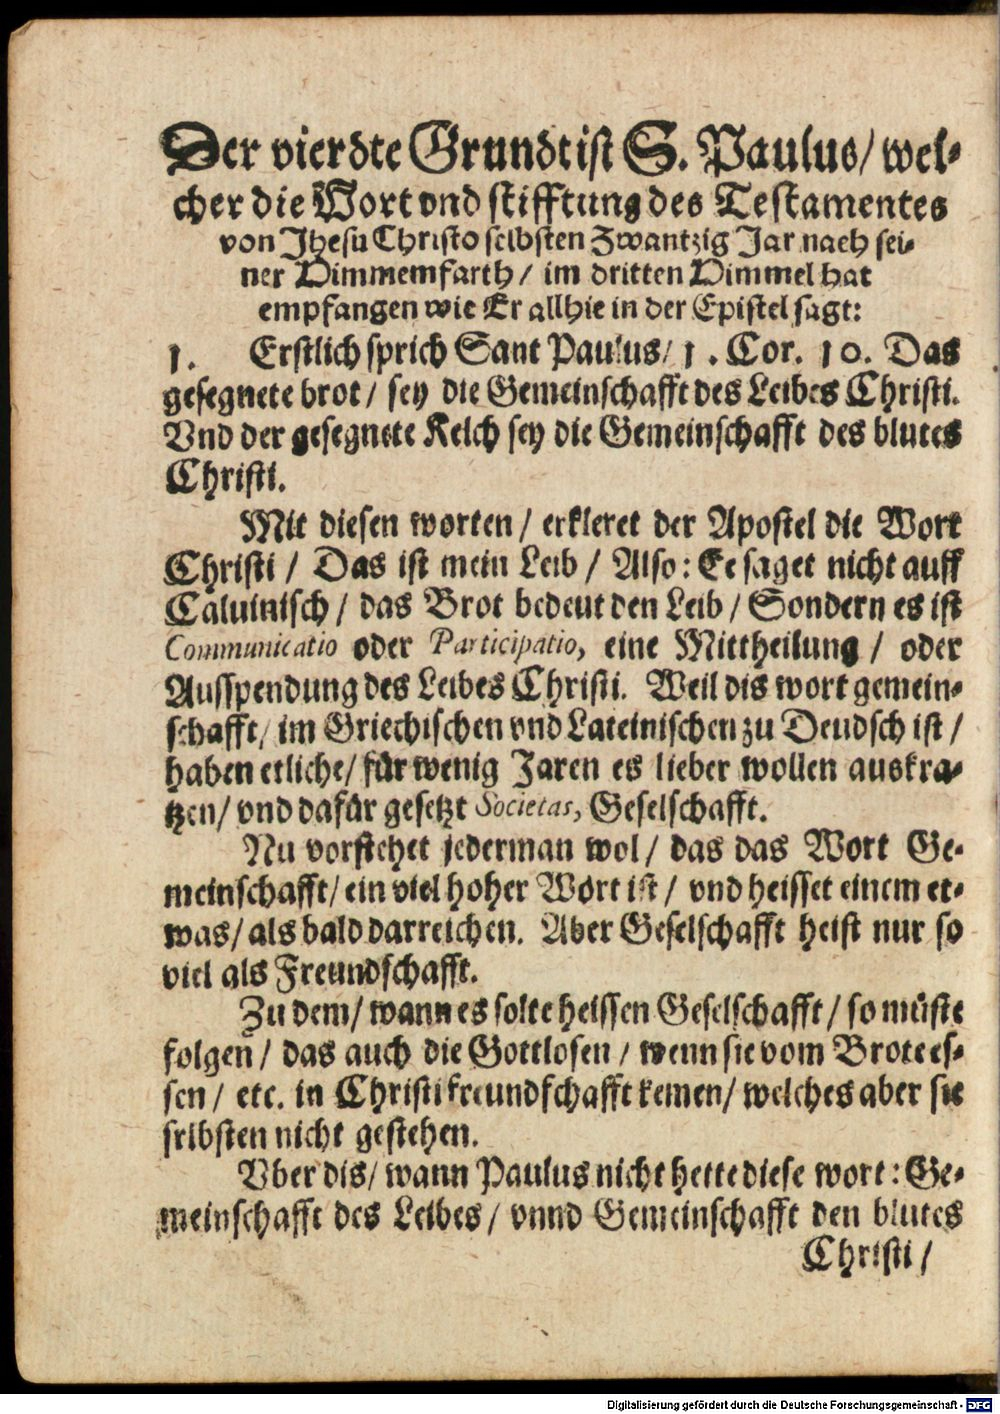 Der vierdte Grundt ist S. Paulus/ wel⸗
cher die Wort vnd stifftung des Testamentes
von Jhesu Christo selbsten Zwantzig Jar nach sei⸗
ner Himmemfarth/ im dritten Himmel hat
empfangen wie Er allhie in der Epistel sagt:
1. Erstlich sprich Sant Paulus/ 1. Cor. 10. Das
gesegnete brot/ sey die Gemeinschafft des Leibes Christi.
Vnd der gesegnete Kelch sey die Gemeinschafft des blutes
Christi.
Mit diesen worten/ erkleret der Apostel die Wort
Christi/ Das ist mein Leib/ Also: Ee saget nicht auff
Caluinisch/ das Brot bedeut den Leib/ Sondern es ist
Communicatio oder Participatio, eine Mittheilung/ oder
Ausspendung des Leibes Christi. Weil dis wort gemein⸗
schafft/ im Griechischen vnd Lateinischen zu Deudsch ist/
haben etliche/ für wenig Jaren es lieber wollen auskra⸗
tzen/ vnd dafür gesetzt Societas, Geselschafft.
Nu vorstehet jederman wol/ das das Wort Ge⸗
meinschafft/ ein viel hoher Wort ist/ vnd heisset einem et⸗
was/ als bald darreichen. Aber Geselschafft heist nur so
viel als Freundschafft.
Zu dem/ wann es solte heissen Geselschafft/ so müste
folgen/ das auch die Gottlosen/ wenn sie vom Brote es⸗
sen/ etc. in Christi freundschafft kemen/ welches aber sie
selbsten nicht gestehen.
Vber dis/ wann Paulus nicht hette diese wort: Ge⸗
meinschafft des Leibes/ vnnd Gemeinschafft den blutes
Christi/
Digitalisierung gefördert durch die Deutsche Forschungsgemeinschaft - DFG